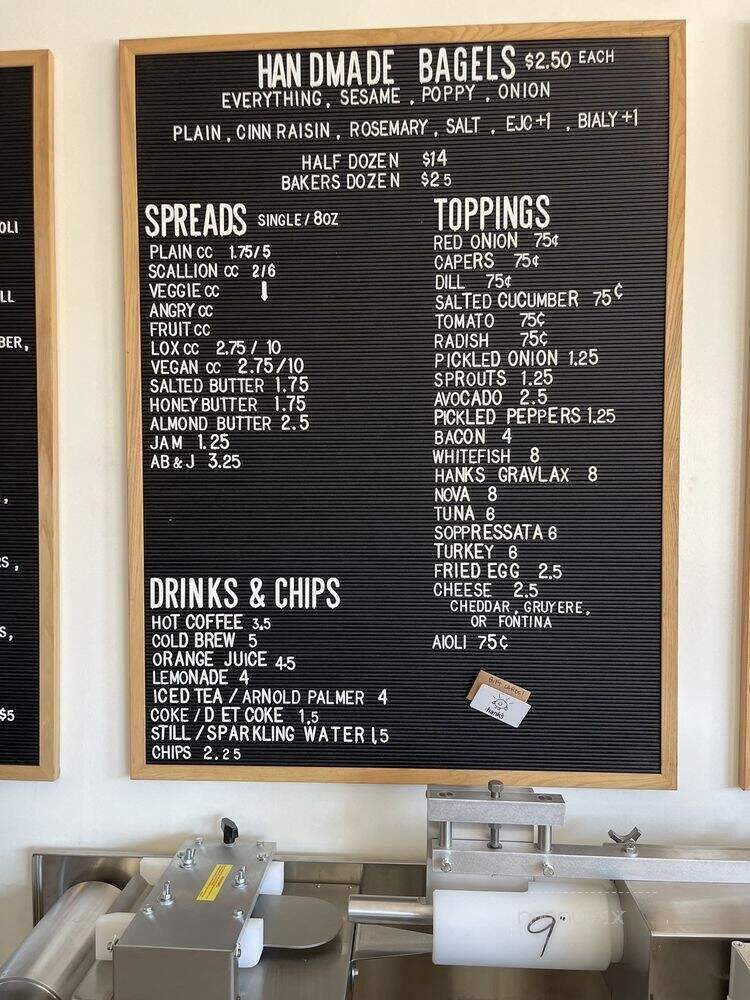 HANDMADE BAGELS $2.50 EACH
EVERYTHING, SESAME, POPPY, ONION
PLAIN, CINN RAISIN, ROSEMARY, SALT, EJC+1, BIALY+1
HALF DOZEN $14
BAKERS DOZEN $25
SPREADS SINGLE/8OZ
PLAIN CC 1.75/5
SCALLION CC 2/6
VEGGIE CC ⬇
ANGRY CC
FRUIT CC
LOX CC 2.75/10
VEGAN CC 2.75/10
SALTED BUTTER 1.75
HONEY BUTTER 1.75
ALMOND BUTTER 2.5
JAM 1.25
AB&J 3.25
DRINKS & CHIPS
HOT COFFEE 3.5
COLD BREW 5
ORANGE JUICE 45
LEMONADE 4
ICED TEA / ARNOLD PALMER 4
COKE / D ET COKE 1,5
STILL / SPARKLING WATER 1,5
CHIPS 2.25
TOPPINGS
RED ONION 75¢
CAPERS 75¢
DILL 75¢
SALTED CUCUMBER 75¢
TOMATO 75¢
RADISH 75¢
PICKLED ONION 1.25
SPROUTS 1.25
AVOCADO 2.5
PICKLED PEPPERS 1.25
BACON 4
WHITEFISH 8
HANKS GRAVLAX 8
NOVA 8
TUNA 6
SOPPRESSATA 6
TURKEY 6
FRIED EGG 2.5
CHEESE 2.5
CHEDDAR, GRUYERE,
OR FONTINA
AIOLI 75¢
GIFT CARDS!
hank's
OLI
LL
BER,
,
S,
S,
$5
9"